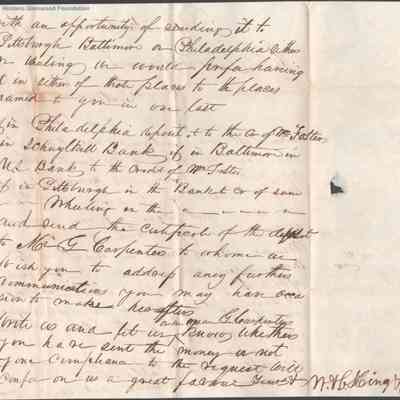 Western Glenwood Foundation
with an opportunity of sending it to
Pittsburgh Baltimore or Philadelphia &
or we would prefer having
it in either of those places to the places
named to you in our last
if in Philadelphia deposit it to the Cr of Wm Foster
in Schuylkill Bank if in Baltimore in
US Bank to the credit of Wm Foster
if in Pittsburgh in the Bank to cr of same
Wheeling
and send the certificate of the deposit
to Mr G Carpenter to whome we
wish you to address any further
communications you may have occa
sion to make hereafter
G Carpenter
write us and let us know whether
you have sent the money or not
your compliance to the request will
confer on us a great favour N. H. King